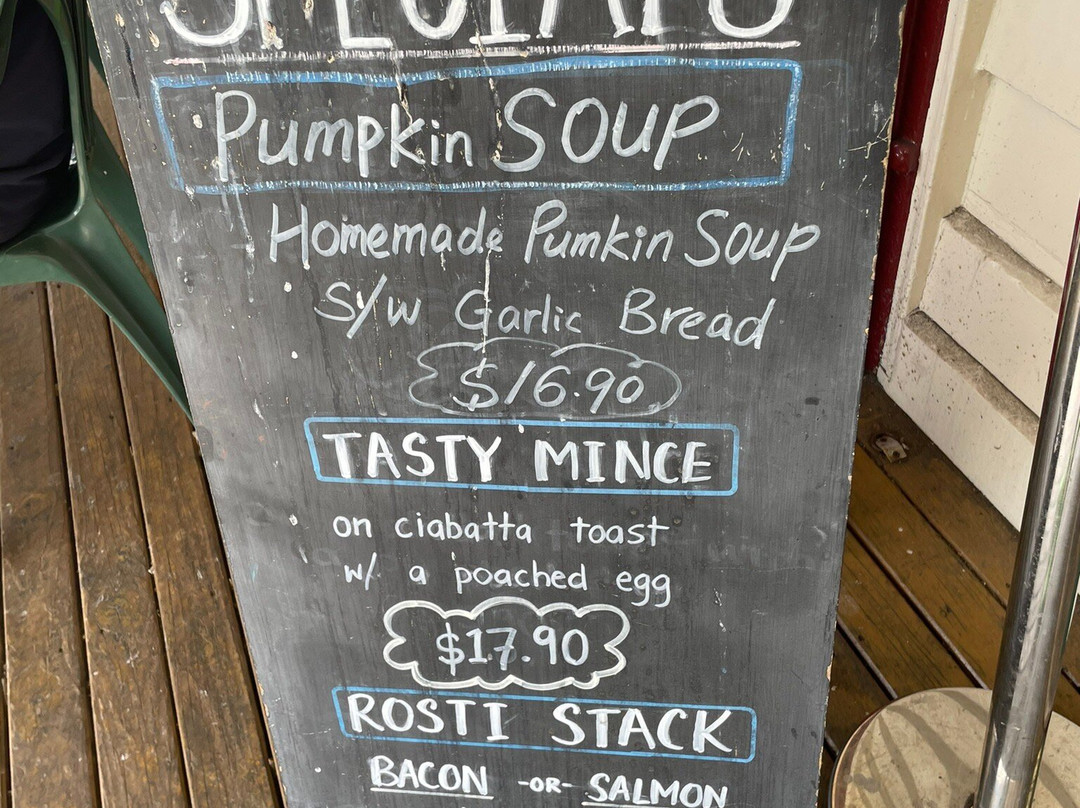 SPECIALS
Pumpkin SOUP
Homemade Pumkin Soup
S/w Garlic Bread
$16.90
TASTY MINCE
on ciabatta toast
w/ a poached egg
$17.90
ROSTI STACK
BACON -OR- SALMON